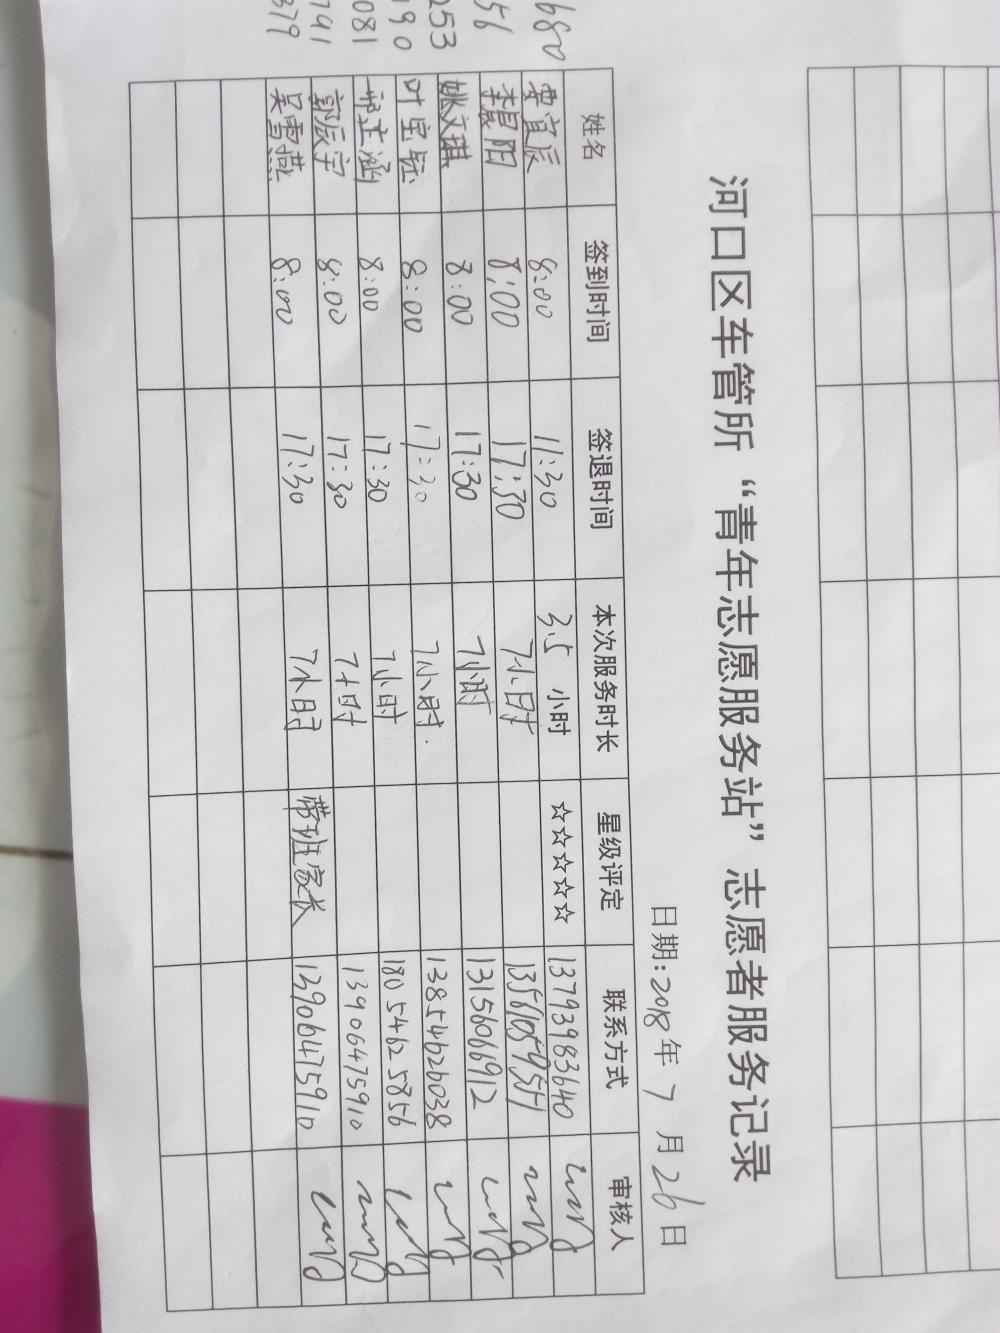 河口区车管所“青年志愿服务站”志愿者服务记录
日期:2018年7月26日
姓名 签到时间 签退时间 本次服务时长 星级评定 联系方式 审核人
宜辰 8:00 11:30 3.5 小时 ☆☆☆☆☆ 13793983640
李晨阳 8:00 17:30 7小时
姚文琪 8:00 17:30 7小时 13156066912
叶宝钰 8:00 17:30 7小时. 13854626038
8:00 17:30 7小时 18054625856
郭辰宇 8:00 17:30 7小时 13906475910
吴雪燕 8:00 17:30 7小时 带班家长 13906475910
680
56
253
190
081
791
379